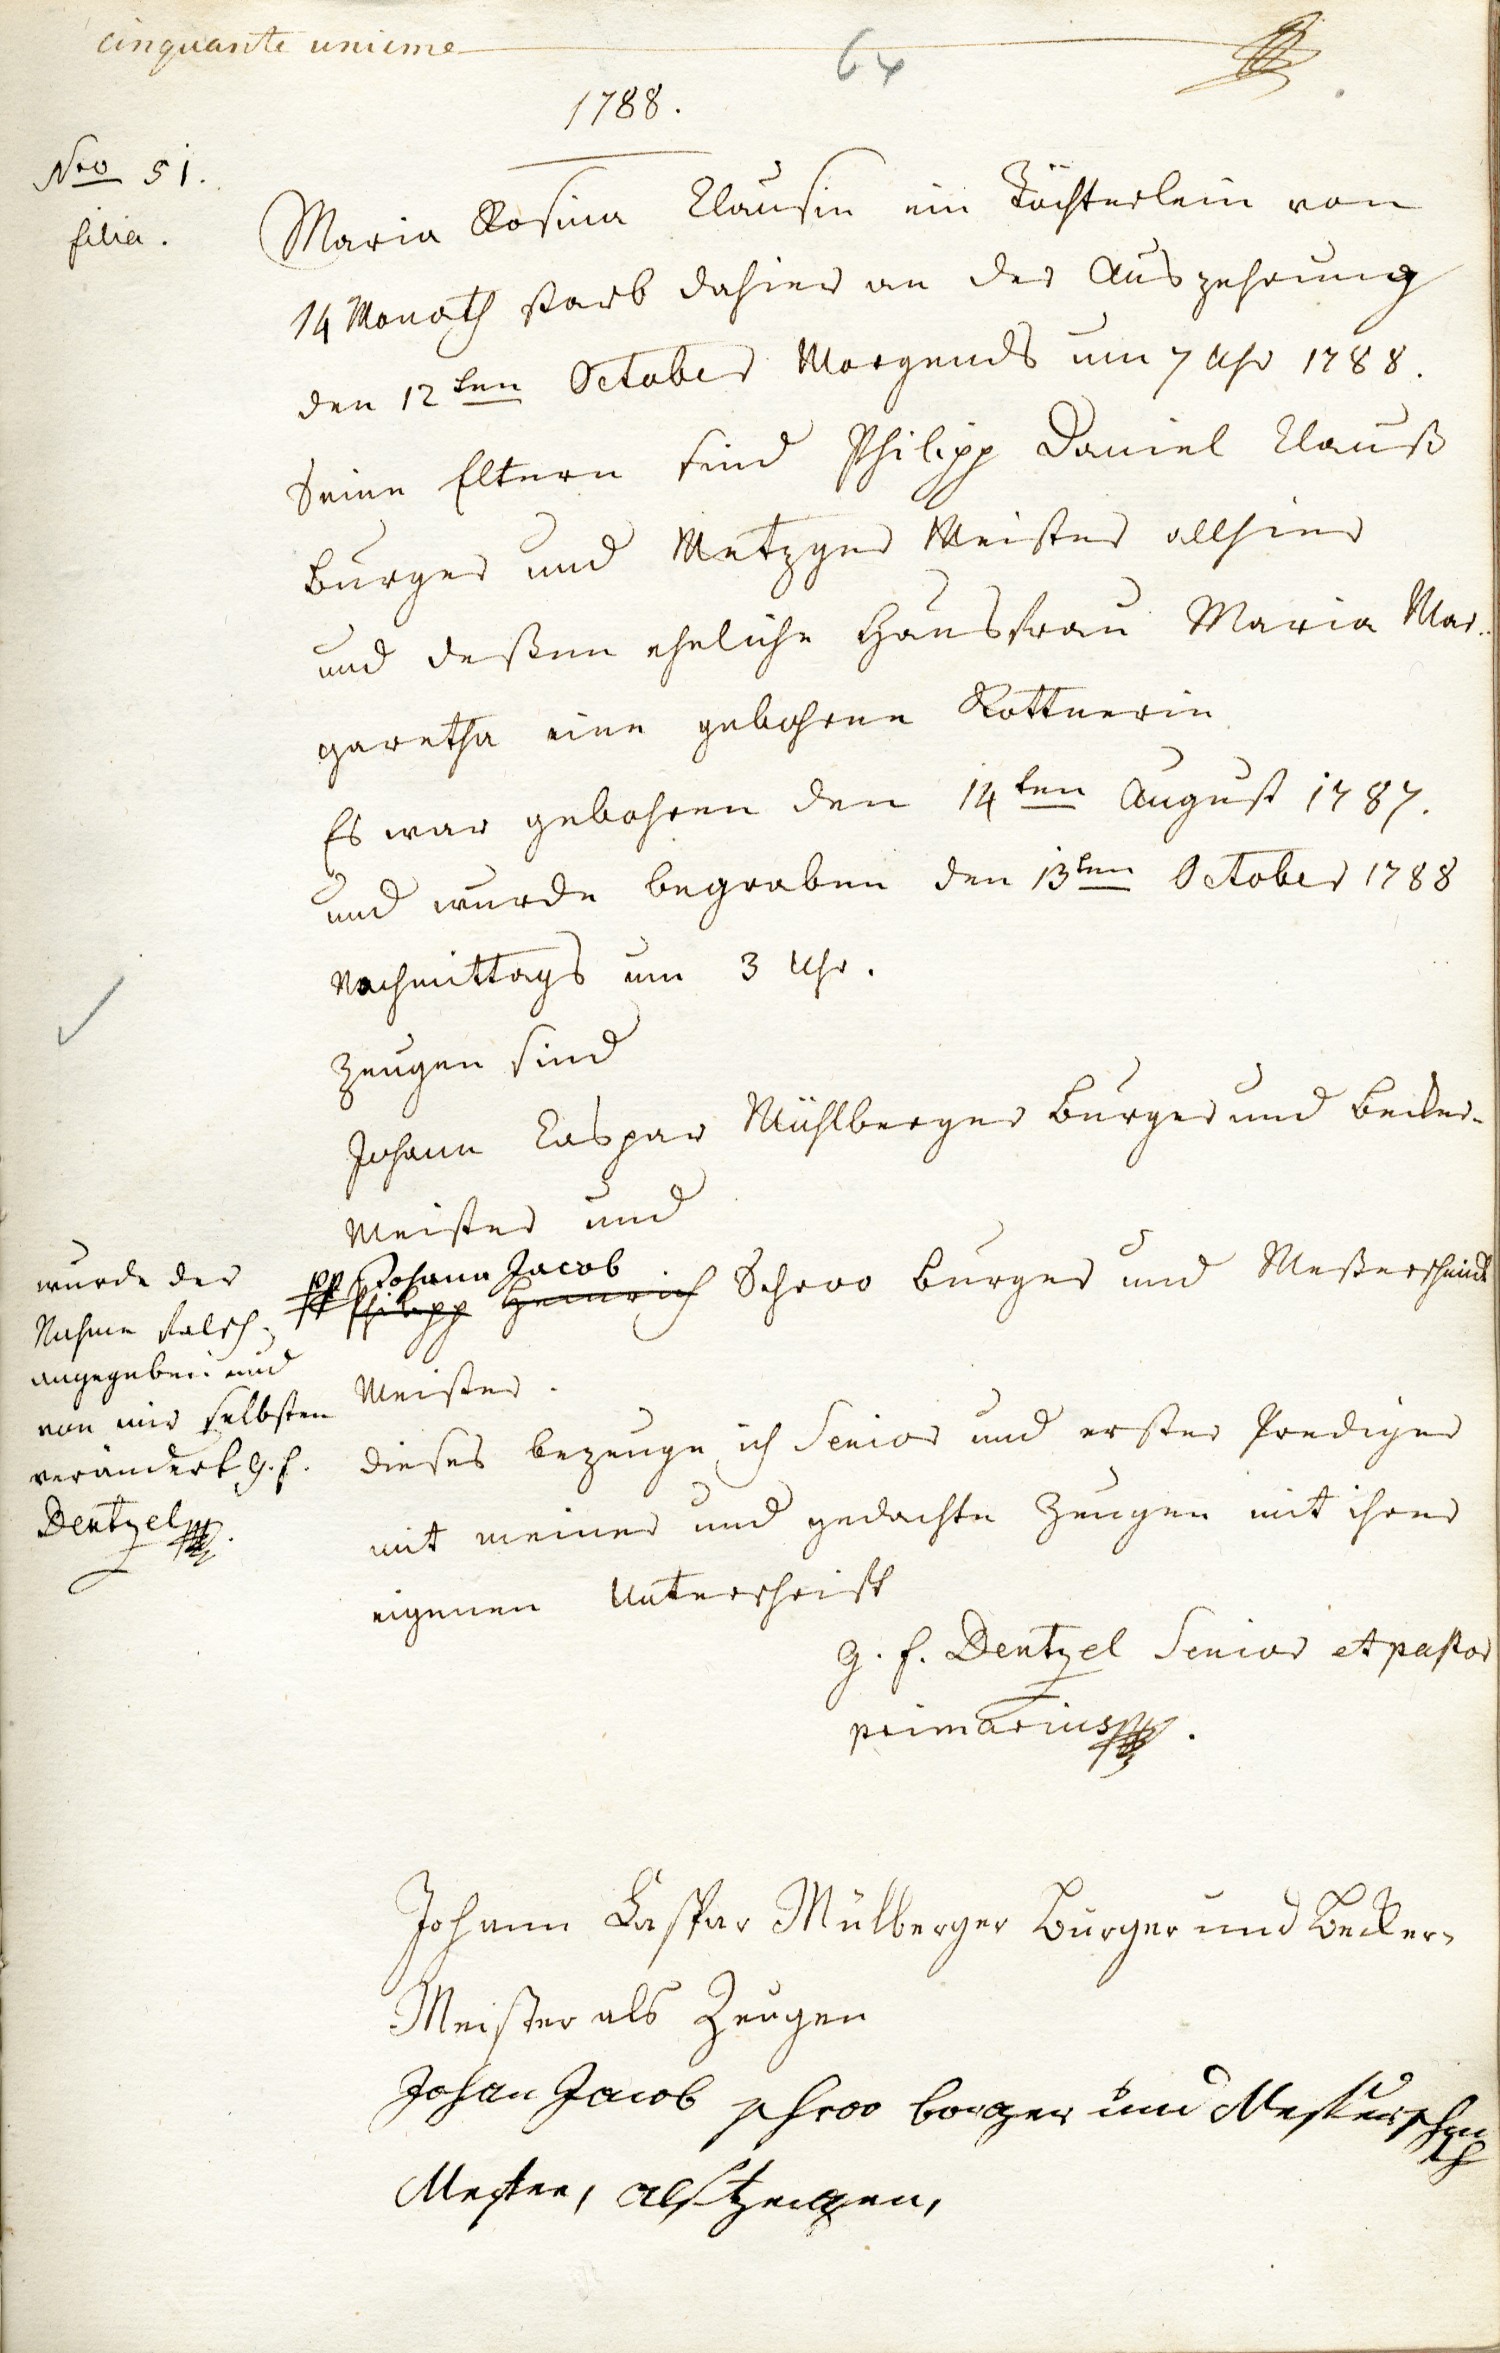 cinquante unieme
64
1788.
Nro 51.
filia.
Maria Rosina Clausin ein Töchterlein von
14 Monath starb dahier an der Auszehrung
den 12ten October Morgends um 7 Uhr 1788.
Seine Eltern sind Philipp Daniel Clauß
Burger und Metzger Meister allhier
und deßen eheliche Hausfrau Maria Mar-
garetha eine gebohrne Rottnerin
Es war gebohren den 14ten August 1787.
und wurde begraben den 13ten October 1788
Nachmittags um 3 Uhr.
Zeugen sind
Johann Caspar Mühlberger Burger und Becker-
Meister und
Johann Jacob
Philipp Heinrich Schroo Burger und Meßerschmidt
Meister.
wurde der
Nahme falsch
angegeben und
von mir selbsten
verändert G. F.
Dentzel
dieses bezeuge ich Senior und erster Prediger
mit meiner und gedachte Zeugen mit ihrer
eigenen Unterschrift
G. F. Dentzel Senior et pastor
primarius.
Johann Caspar Mülberger Burger und Becker-
Meister als Zeugen
Johan Jacob schroo borger und
Mester, als Zeugen,